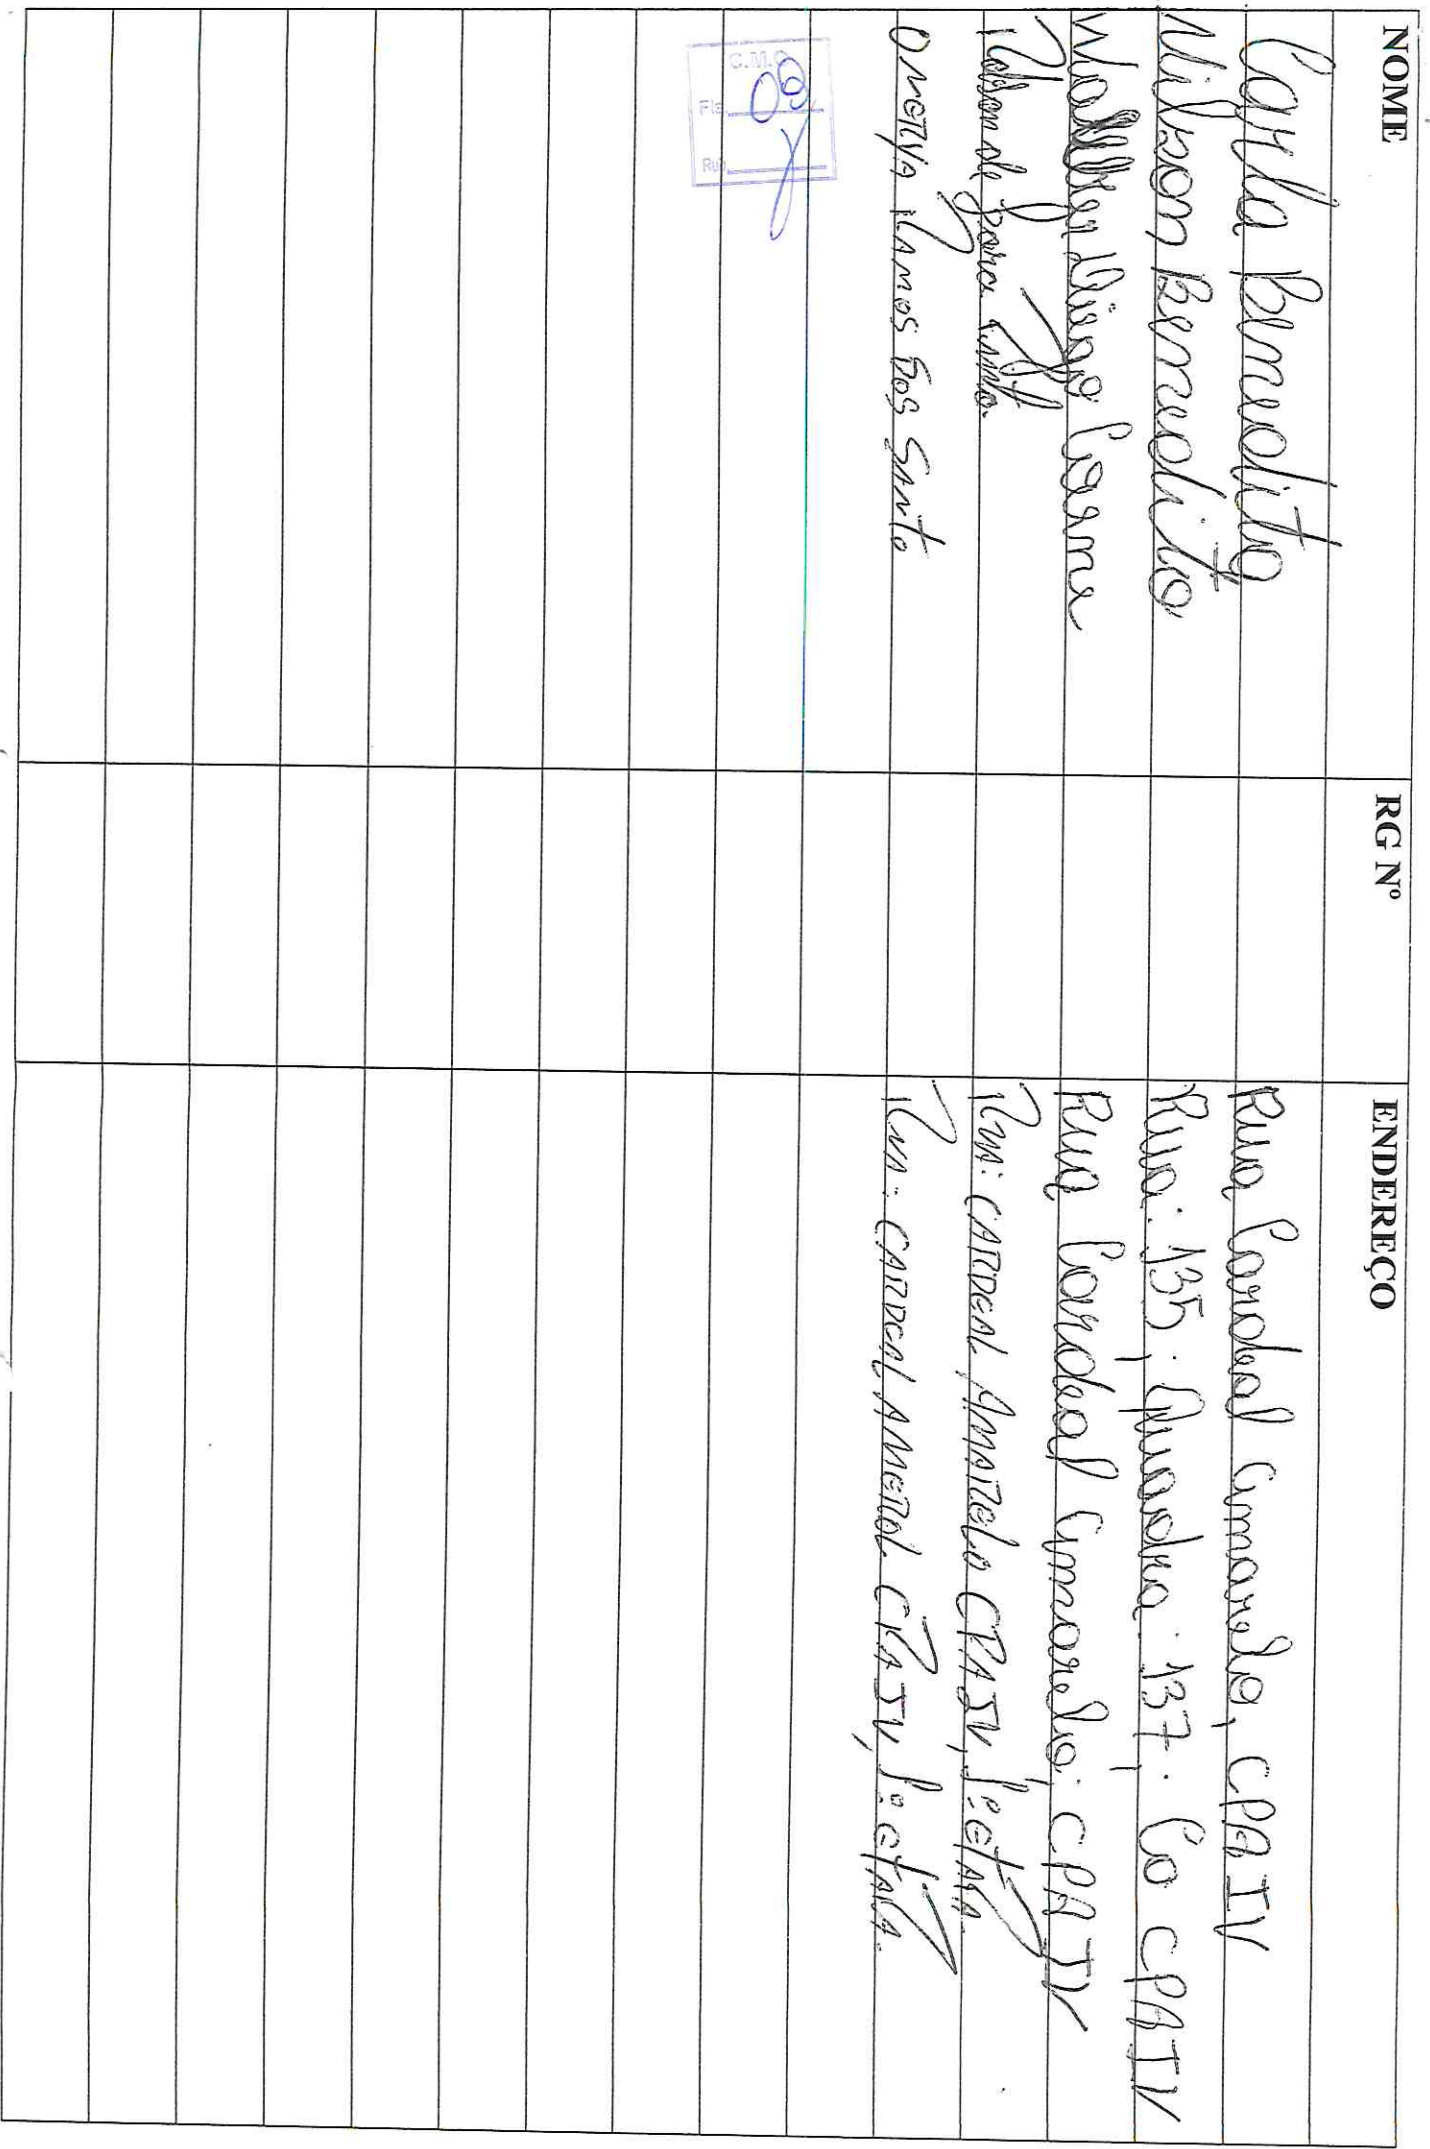 NOME RG Nº ENDEREÇO
Carla Benedito Rua Cardeal Amarelo, CPA IV
Nilson Benedito Rua: 135, Quadra: 137. Co CPA IV
Diogo Rua Cardeal Amarelo, CPA IV
Rua: CARDEAL AMARELO CPA IV, 1º ETAPA
RAMOS DOS SANTO Rua: CARDEAL CPA IV, 1º ETAPA.
C.M.C
Fls 09
Rub